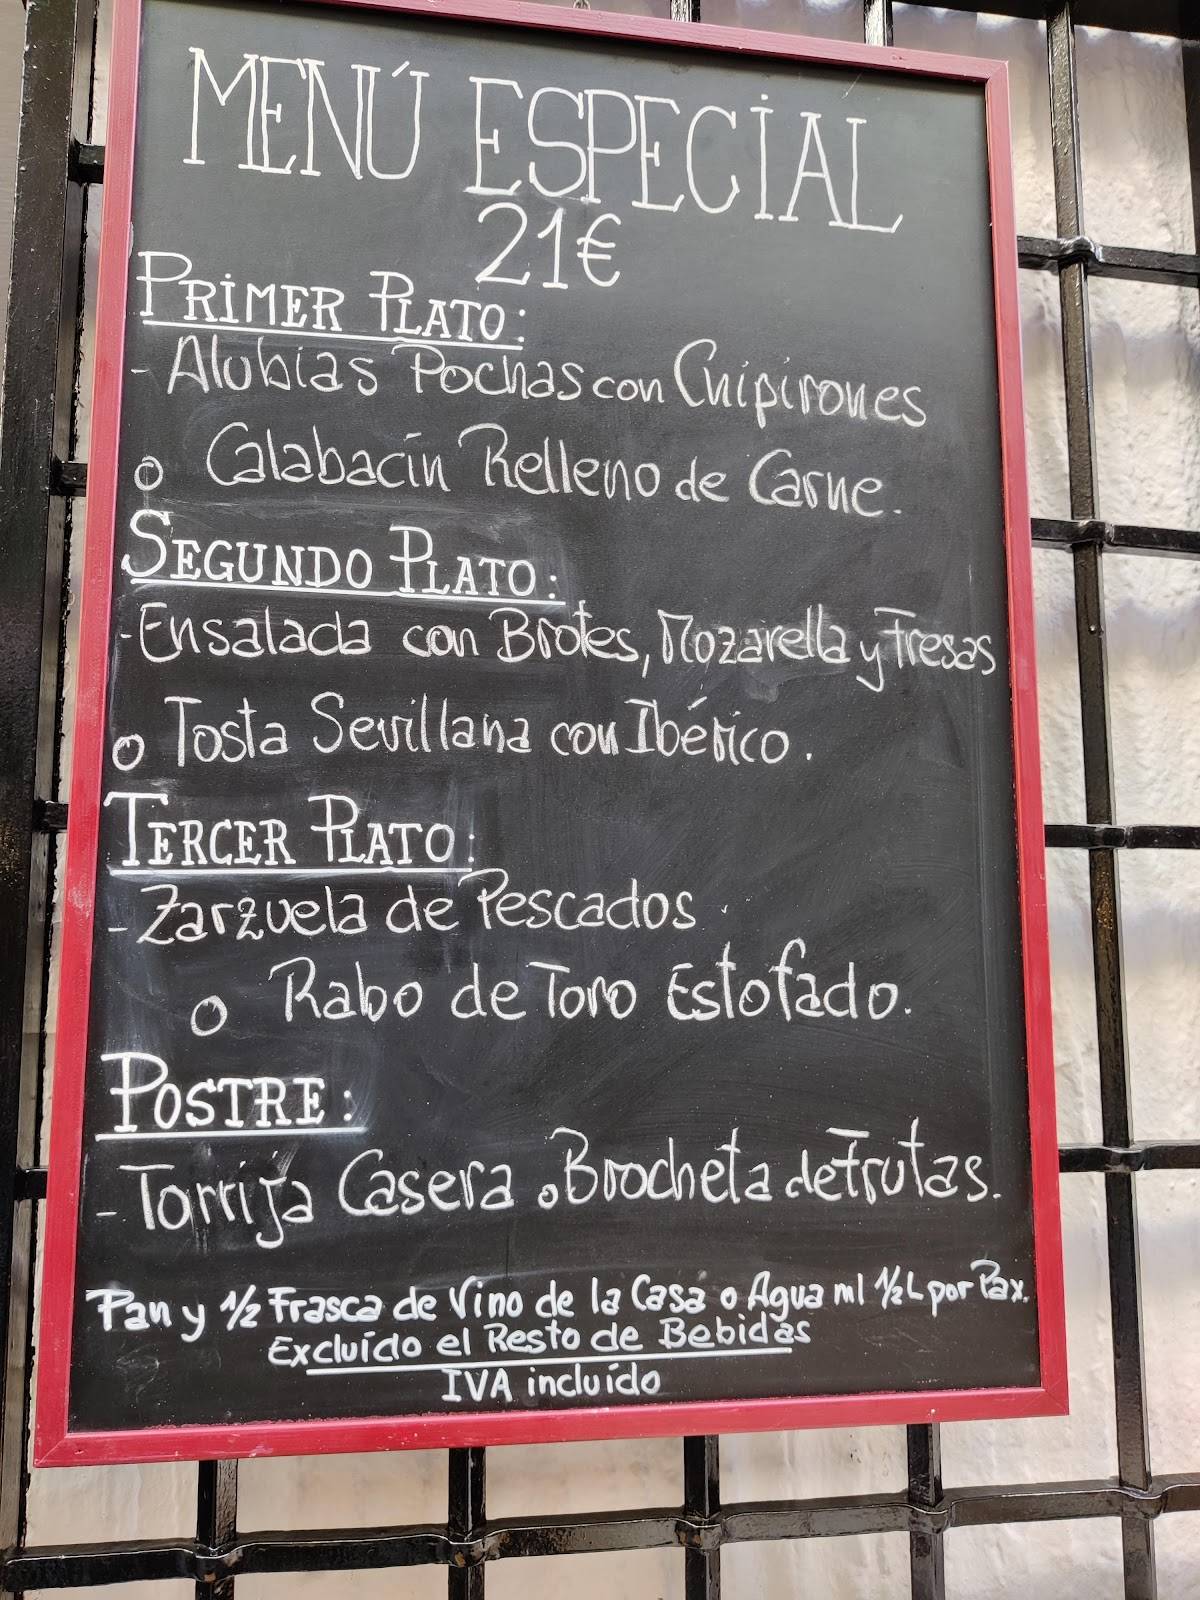 MENÚ ESPECIAL
21€
PRIMER PLATO:
- Alubias Pochas con Chipirones
o Calabacín Relleno de Carne.
SEGUNDO PLATO:
- Ensalada con Brotes, Mozarella y Fresas
o Tosta Sevillana con Ibérico.
TERCER PLATO:
- Zarzuela de Pescados.
o Rabo de Toro Estofado.
POSTRE:
- Torrija Casera o Brocheta de Frutas.
Pan y 1/2 Frasca de Vino de la Casa o Agua ml 1/2 L por Pax.
Excluído el Resto de Bebidas
IVA incluído